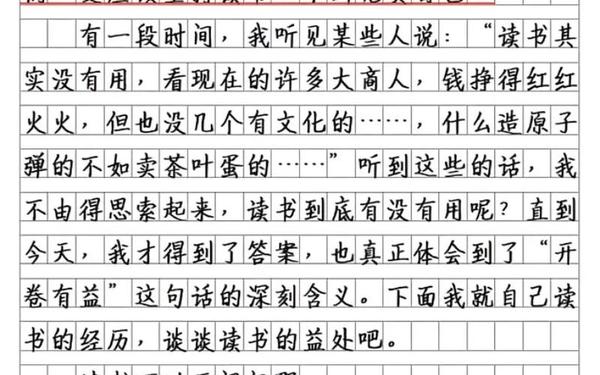 有一段时间，我听见某些人说：“读书其
实没有用，看现在的许多大商人，钱挣得红红
火火，但也没几个有文化的……，什么造原子
弹的不如卖茶叶蛋的……”听到这些的话，我
不由得思索起来，读书到底有没有用呢？直到
今天，我才得到了答案，也真正体会到了“开
卷有益”这句话的深刻含义。下面我就自己读
书的经历，谈谈读书的益处吧。